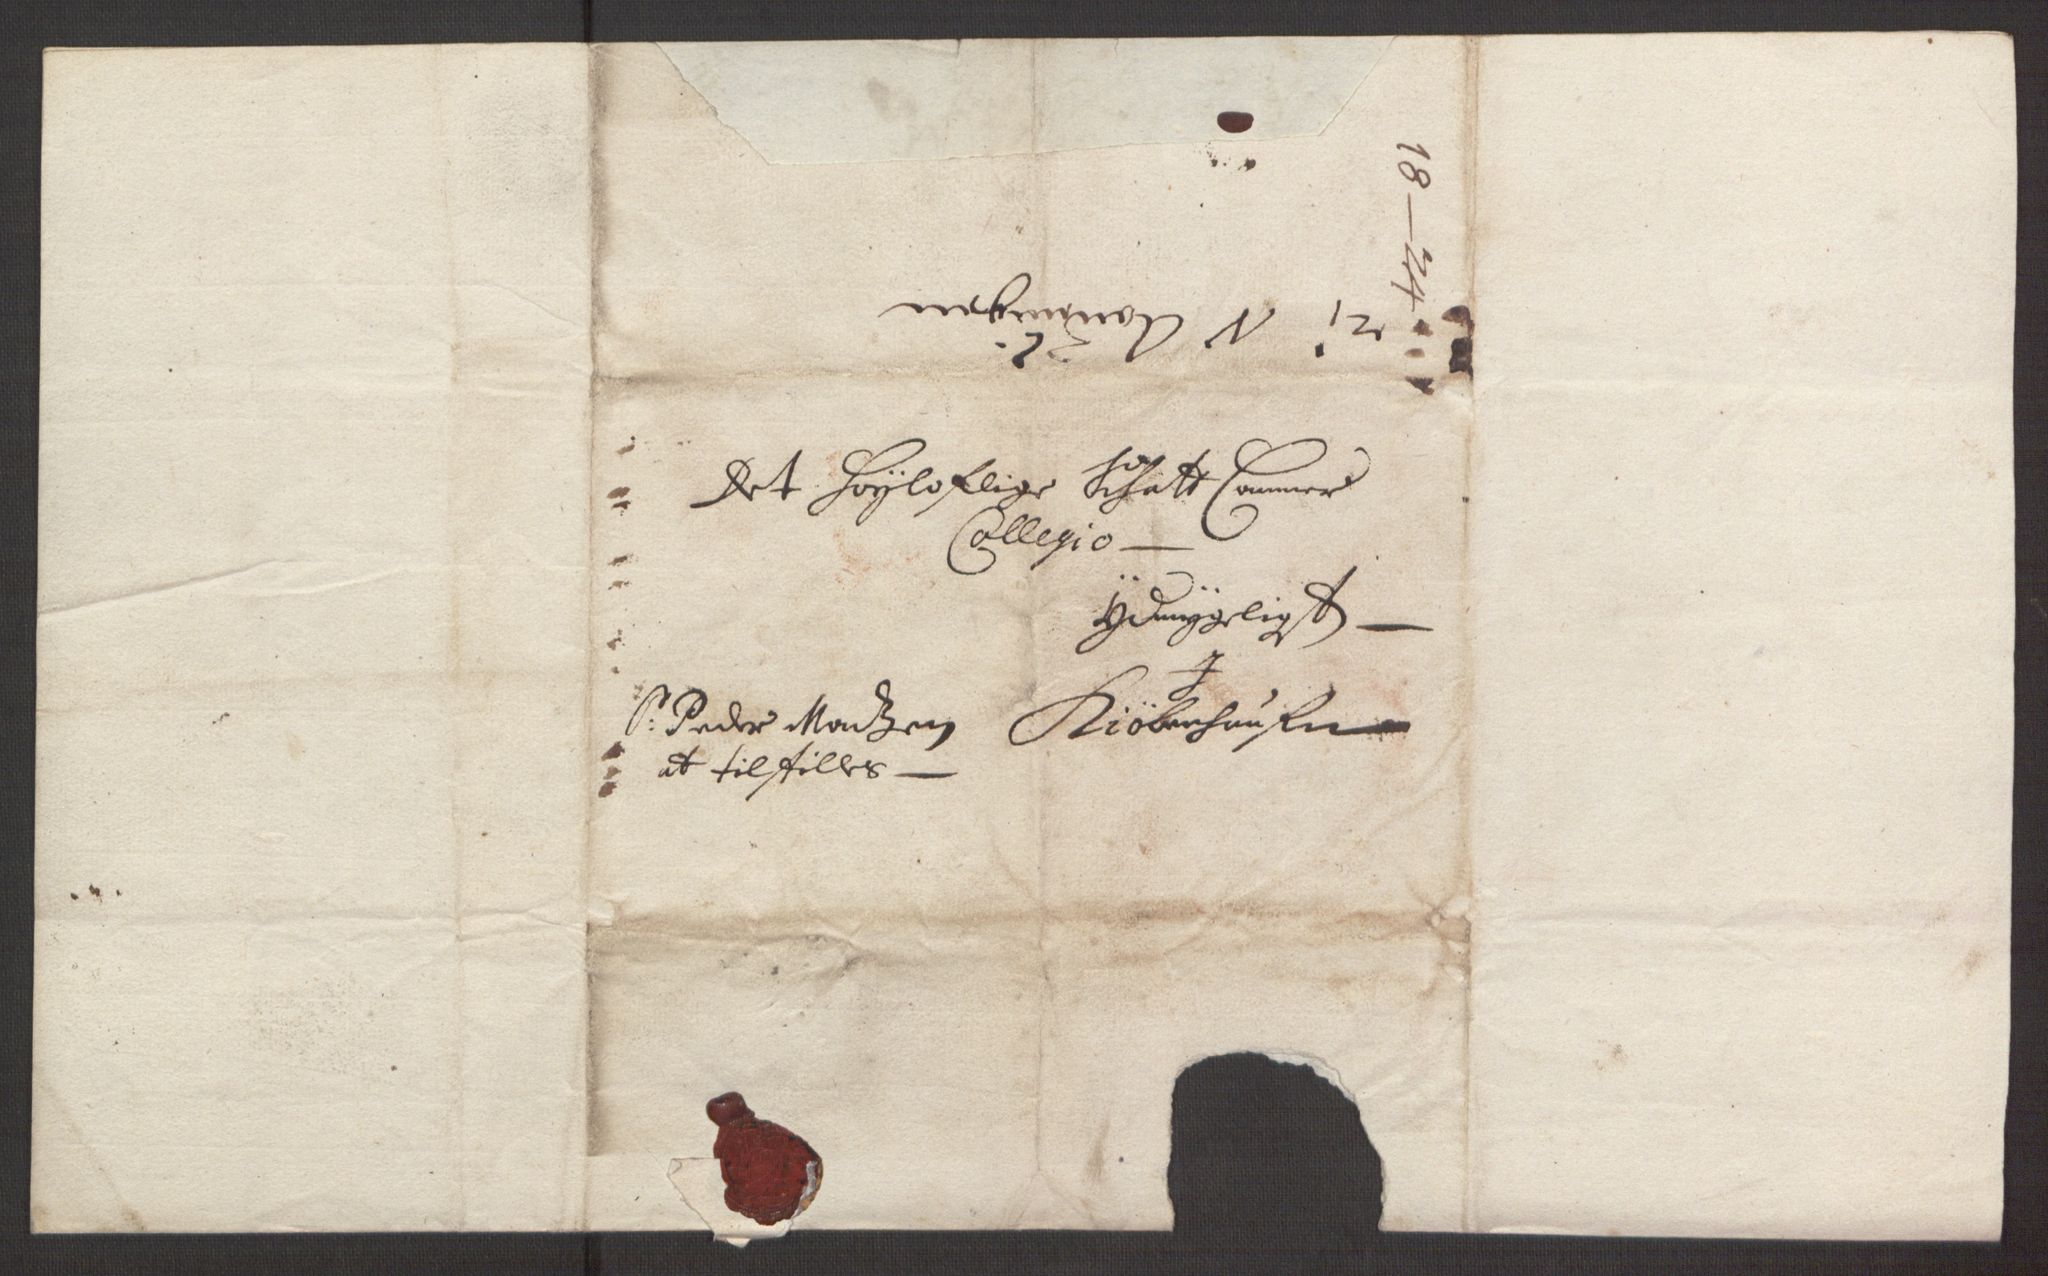 18 – 24
Det Höyloflige Schatt Cammer
Collegio —
Ydmÿgeligst —
J
Kiöbenhaufn
Sr: Peder Madzen
at tilstilles —